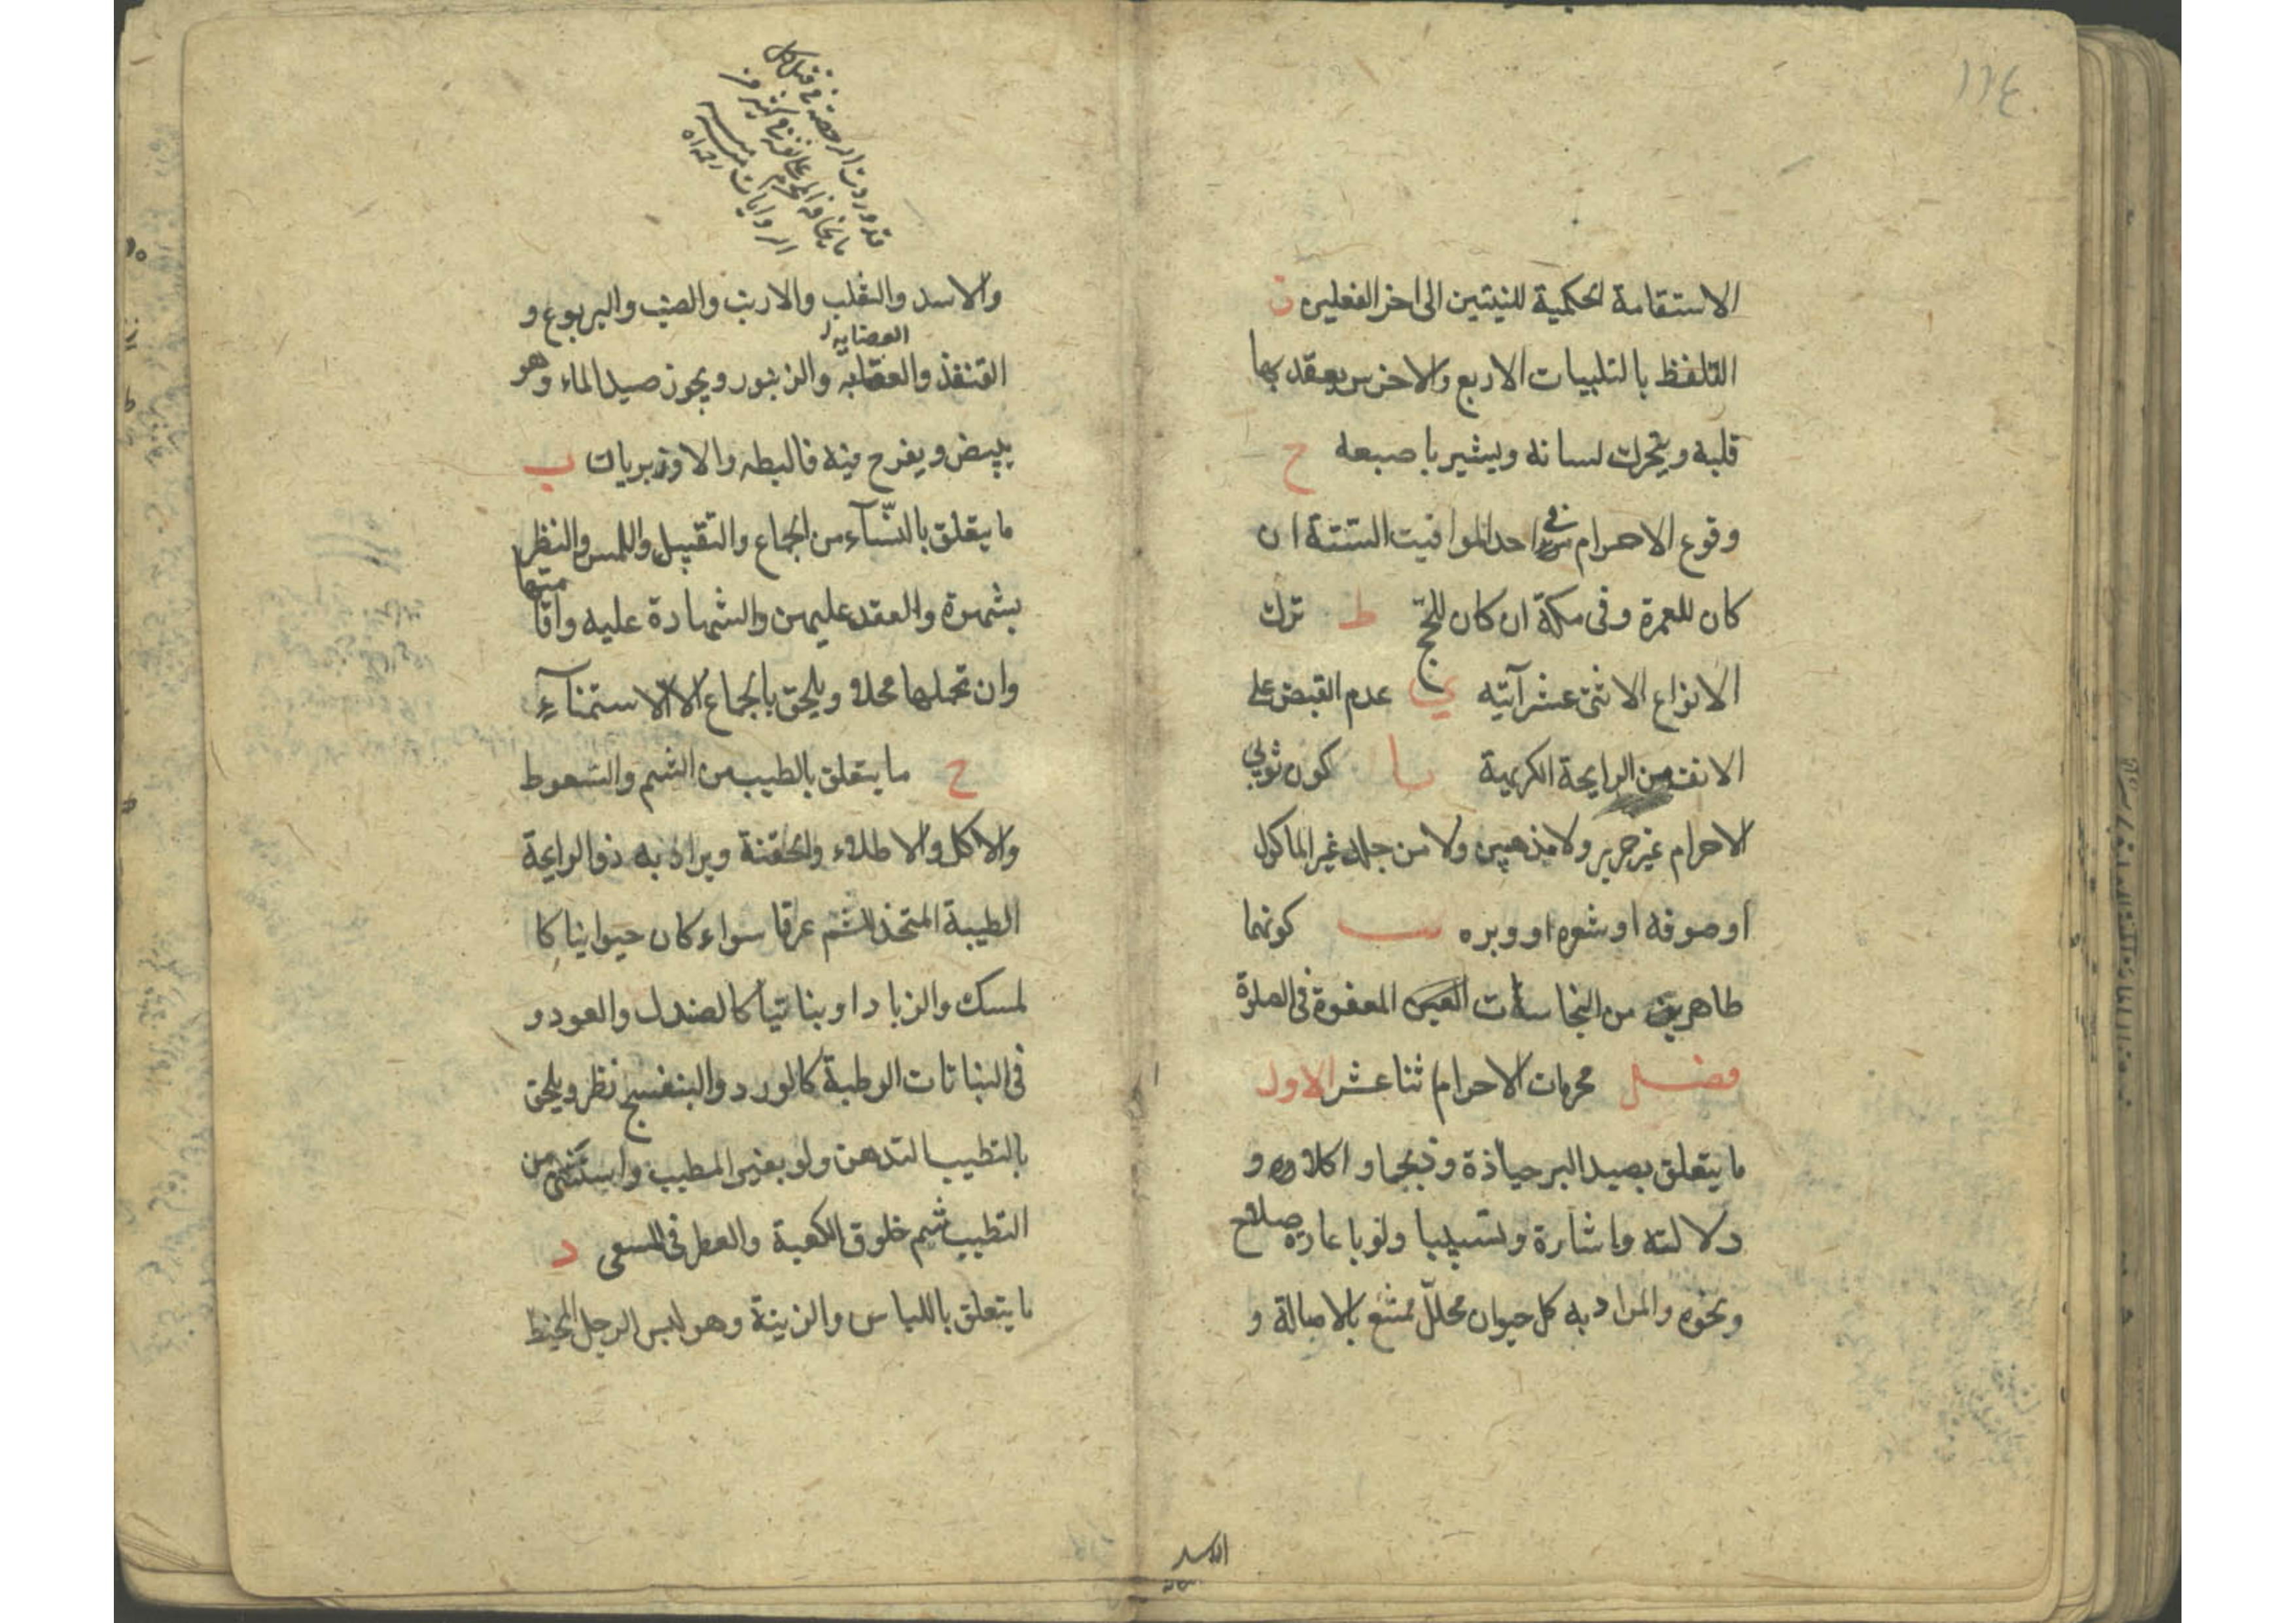 ١١٤
الاستقامة الحكمية للنيتين الى اخر الفعلين ز
التلفظ بالتلبيات الاربع والاخرس يعقد بها
قلبه ويحرك لسانه ويشير باصبعه ح
وقوع الاحرام في احد المواقيت الستة ان
كان للعمرة وفى مكة ان كان للحج ط ترك
الانواع الاثنى عشر آتيه ي عدم القبض على
الانف من الرايحة الكريهة يا كون ثوبي
الاحرام غير حرير ولا مذهبين ولا من جلد غير الماكول
او صوفه او شعره او وبره يب كونهما
طاهرين من النجاسات الغير المعفوة فى الصلوة
فصل محرمات الاحرام اثنا عشر الاول
ما يتعلق بصيد البر حيازة وذبحا و اكلا و
دلالته واشارة وتسبيبا ولو باعارة سلاح
ونحوه والمراد به كل حيوان محلل ممتنع بالاصالة و
الاسد
قد وردت الرخصة في قتل كل
ما يخافه المحرم على نفسه في كثير من
الروايات منه رحمه الله
والاسد والثعلب والارنب والضب واليربوع و
العضاية
القنفذ والعضاية والزنبور ويجوز صيد الماء وهو
يبيض ويفرخ فيه فالبطه والاوز بريات ب
ما يتعلق بالنسآء من الجماع والتقبيل واللمس والنظر
بشهوة والعقد عليهن والشهادة عليه واقامتها
وان تحملها محلا ويلحق بالجماع الاستمنآء
ج ما يتعلق بالطيب من الشم والسعوط
والاكل والاطلاء والحقنة ويراد به ذو الرايحة
الطيبة المتخذ للشم عرفا سواء كان حيوانيا كا
لمسك والزباد او نباتيا كالصندل والعود و
فى النباتات الرطبة كالورد والبنفسج نظر ويلحق
بالتطيب التدهن ولو بغير المطيب واستثنى من
التطيب شم خلوق الكعبة والعطر فى المسعى د
ما يتعلق باللباس والزينة وهو لبس الرجل المخيط